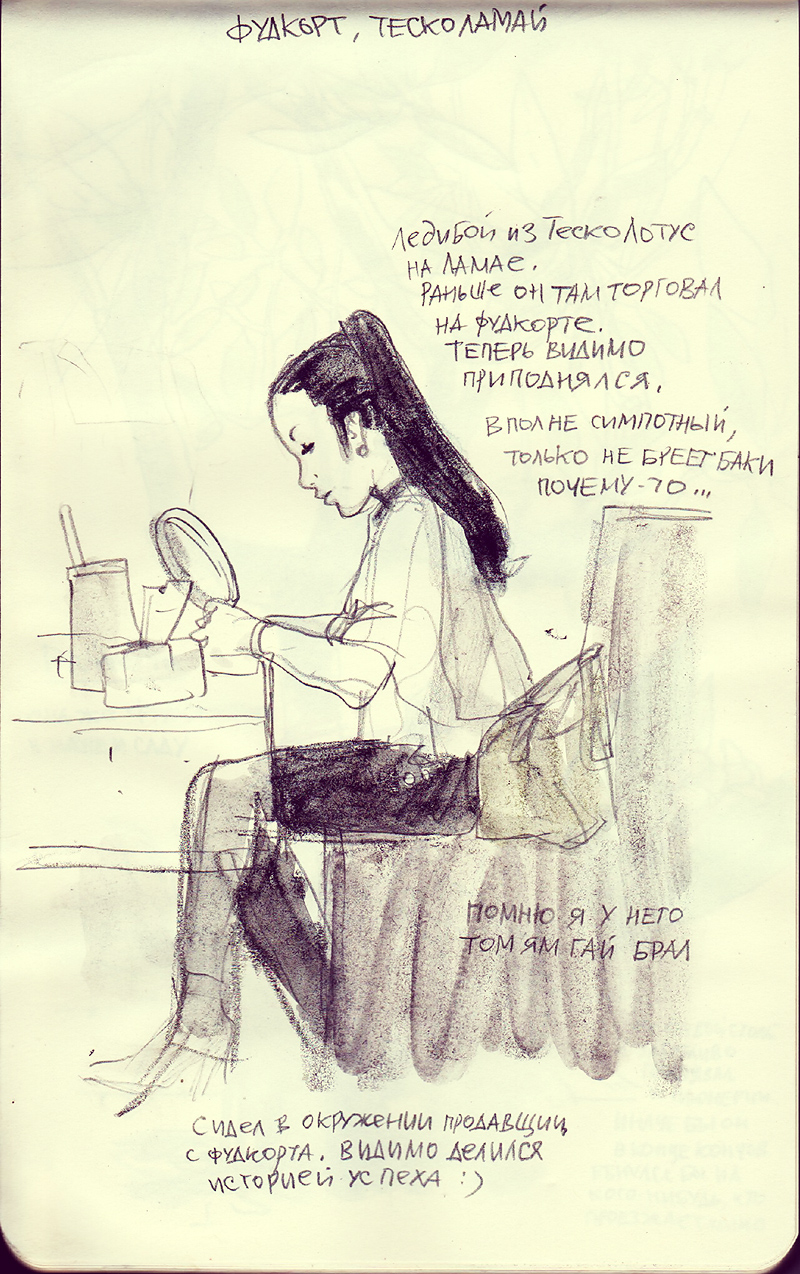 ФУДКОРТ, ТЕСКОЛАМАЙ
ЛЕДИБОЙ ИЗ ТЕСКО ЛОТУС
НА ЛАМАЕ.
РАНЬШЕ ОН ТАМ ТОРГОВАЛ
НА ФУДКОРТЕ.
ТЕПЕРЬ ВИДИМО
ПРИПОДНЯЛСЯ.
ВПОЛНЕ СИМПОТНЫЙ,
ТОЛЬКО НЕ БРЕЕТ БАКИ
ПОЧЕМУ-ТО...
ПОМНЮ Я У НЕГО
ТОМ ЯМ ГАЙ БРАЛ
СИДЕЛ В ОКРУЖЕНИИ ПРОДАВЩИЦ
С ФУДКОРТА. ВИДИМО ДЕЛИЛСЯ
ИСТОРИЕЙ УСПЕХА :)